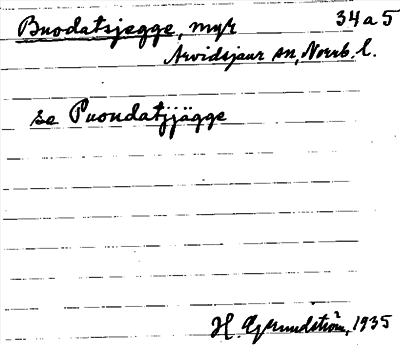 Buodatsjegge, myr 34a5
Arvidsjaur sn, Norrb. l.
se Puondatjjägge
H. Grundström, 1935